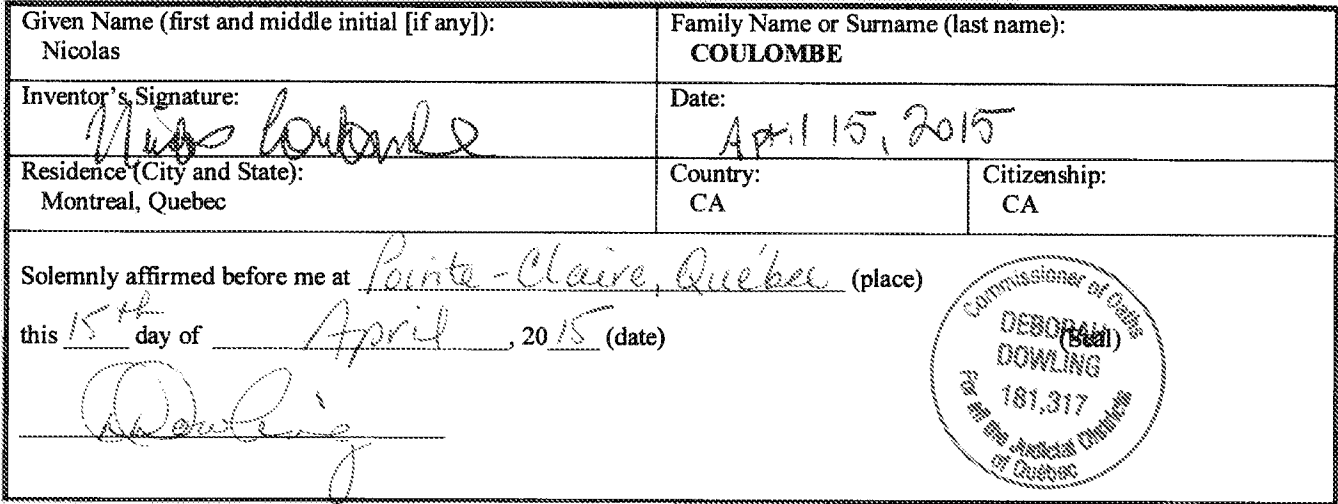 Given Name (first and middle initial [if any]):
Nicolas
Family Name or Surname (last name):
COULOMBE
Inventor's Signature:
Nicolas Coulombe
Date:
April 15, 2015
Residence (City and State):
Montreal, Quebec
Country:
CA
Citizenship:
CA
Solemnly affirmed before me at Pointe-Claire, Québec (place)
this 15th day of April, 2015 (date)
(Seal)
DDowling
Commissioner of Oaths
DEBORAH
DOWLING
181,317
For all the Judicial Districts
of Québec